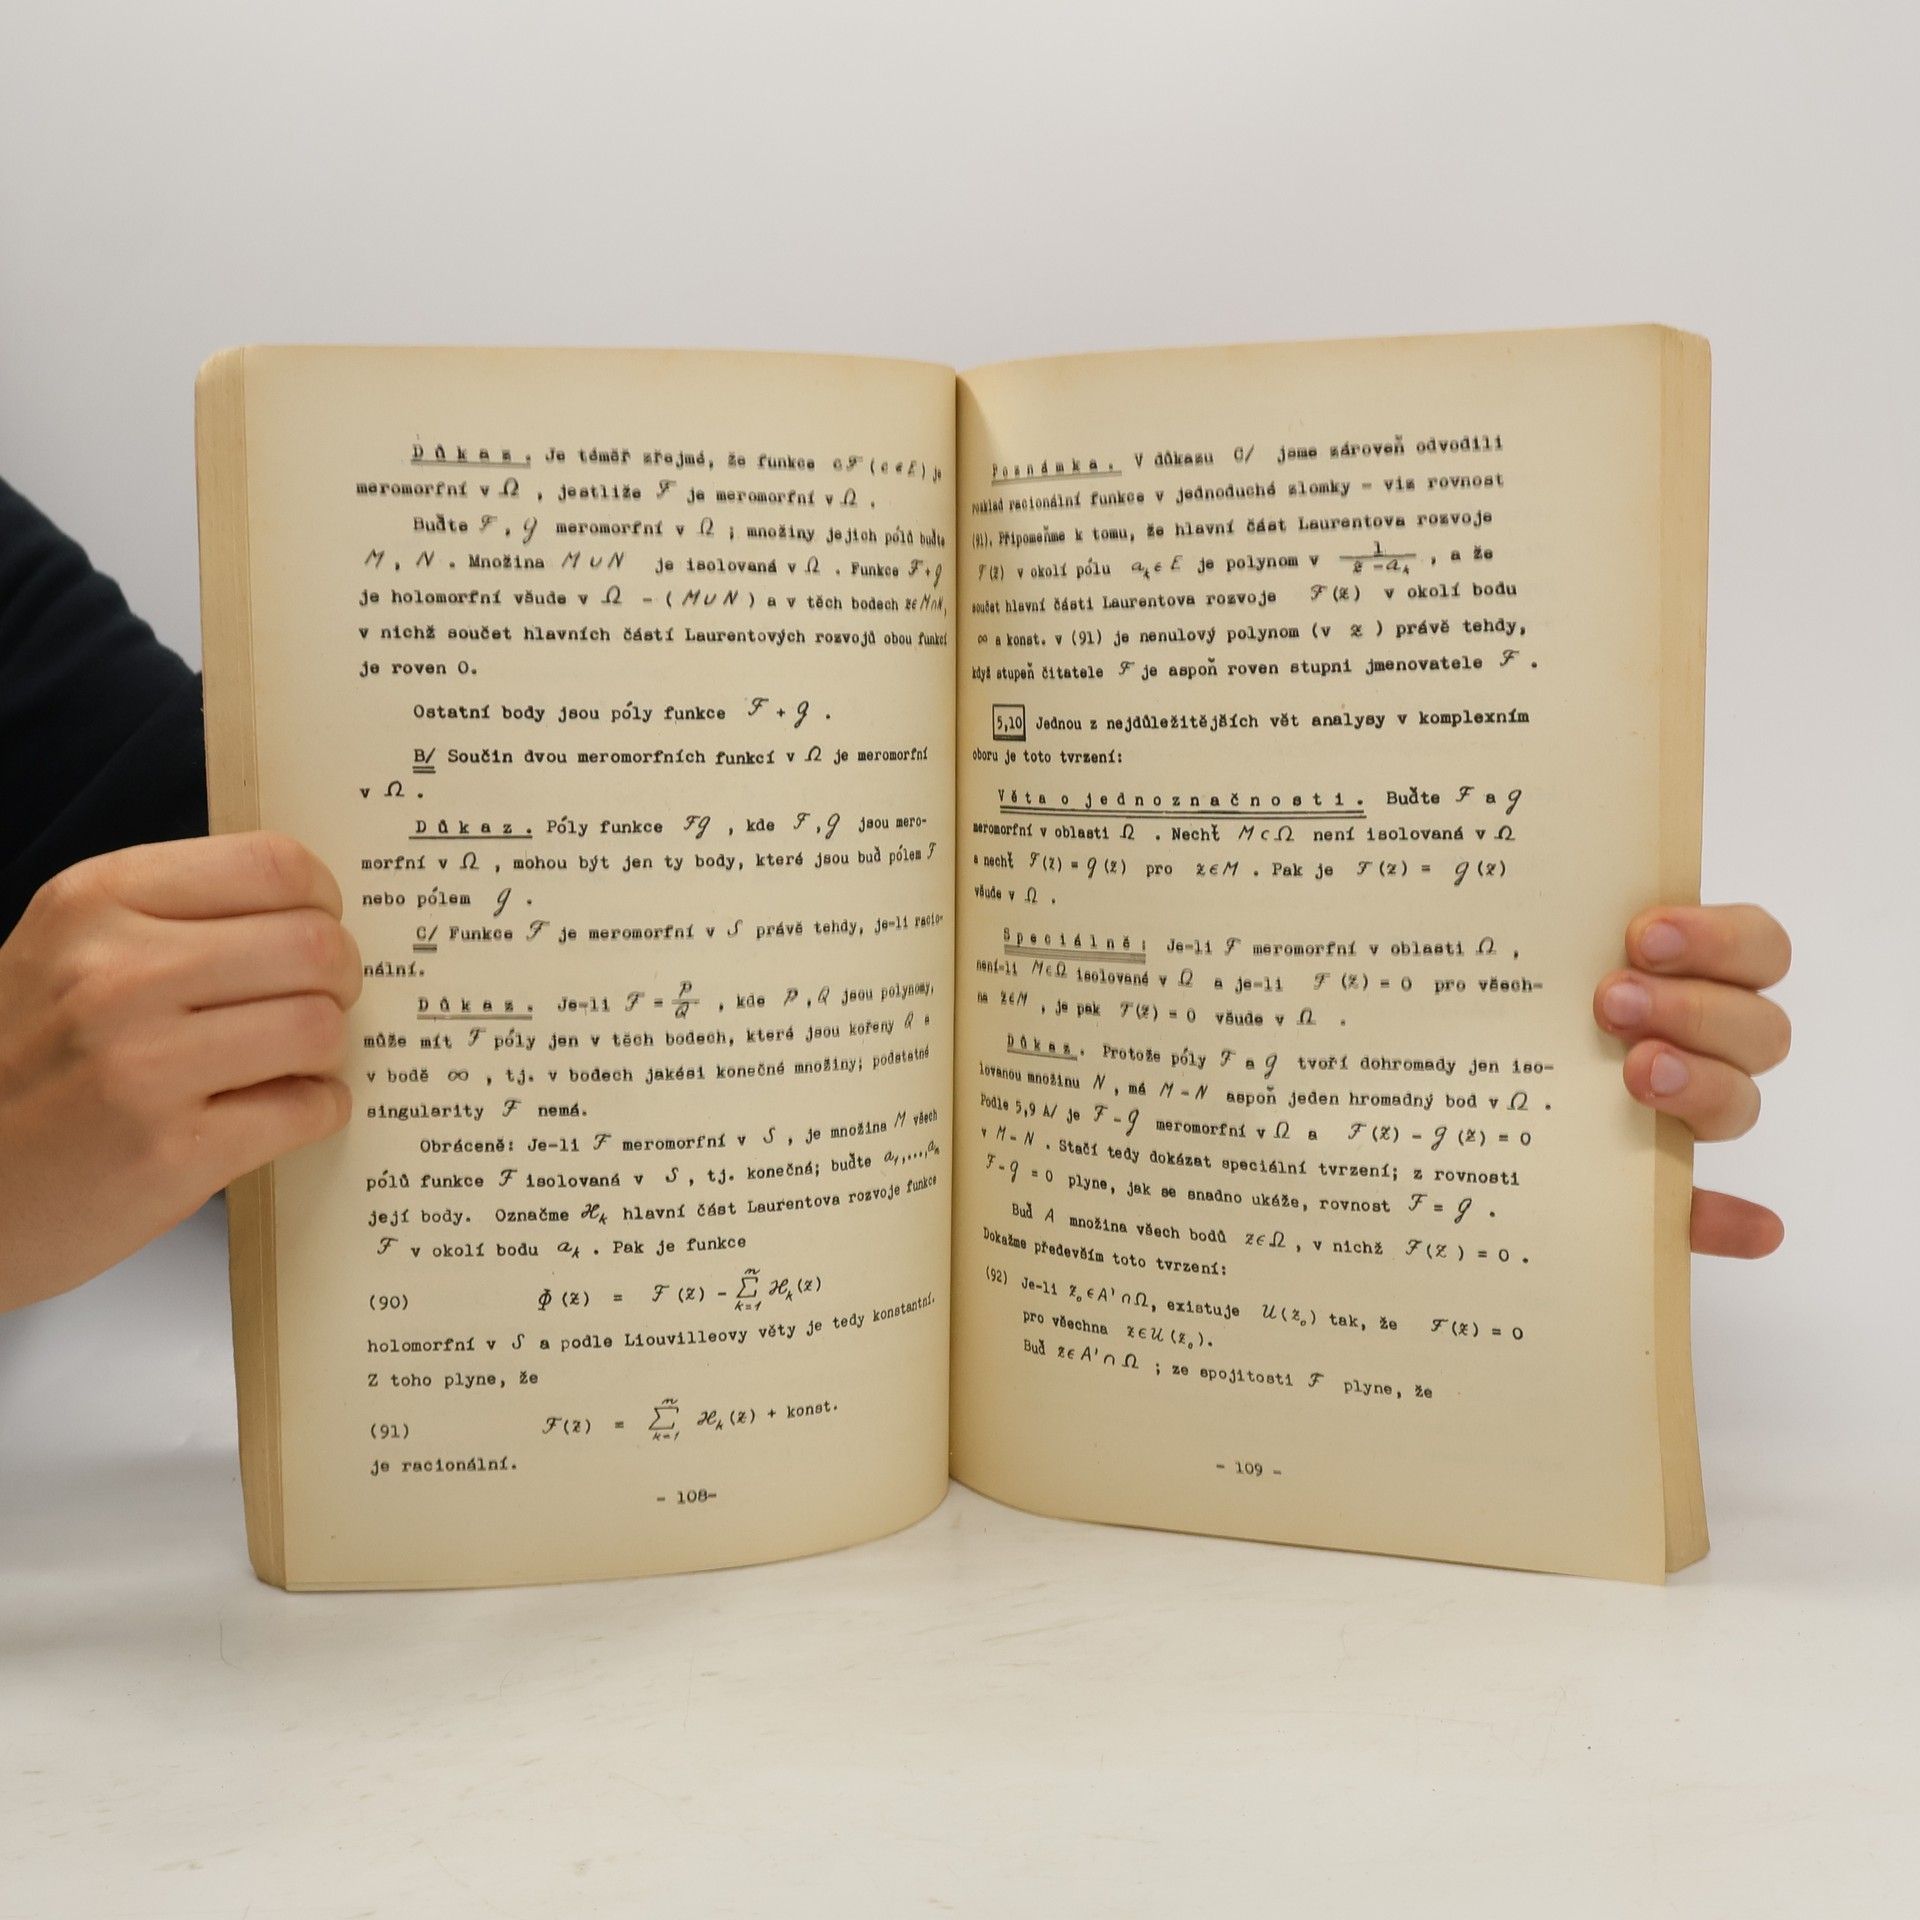 Důkaz. Je téměř zřejmé, že funkce cF (c ∈ E) je
meromorfní v Ω , jestliže F je meromorfní v Ω .
Buďte F, G meromorfní v Ω ; množiny jejich pólů buďte
M, N. Množina M ∪ N je isolovaná v Ω . Funkce F+G
je holomorfní všude v Ω - ( M ∪ N ) a v těch bodech z∈M∩N,
v nichž součet hlavních částí Laurentových rozvojů obou funkcí
je roven 0.
Ostatní body jsou póly funkce F + G .
B/ Součin dvou meromorfních funkcí v Ω je meromorfní
v Ω .
Důkaz. Póly funkce FG , kde F, G jsou mero-
morfní v Ω , mohou být jen ty body, které jsou buď pólem F
nebo pólem G .
C/ Funkce F je meromorfní v S právě tehdy, je-li racio-
nální.
Důkaz. Je-li F = P/Q , kde P, Q jsou polynomy,
může mít F póly jen v těch bodech, které jsou kořeny Q a
v bodě ∞ , tj. v bodech jakési konečné množiny; podstatné
singularity F nemá.
Obráceně: Je-li F meromorfní v S , je množina M všech
pólů funkce F isolovaná v S , tj. konečná; buďte a₁,...,aₙ
její body. Označme ℋₖ hlavní část Laurentova rozvoje funkce
F v okolí bodu aₖ . Pak je funkce
(90) Φ(z) = F(z) - ∑ₖ₌₁ⁿ ℋₖ(z)
holomorfní v S a podle Liouvilleovy věty je tedy konstantní.
Z toho plyne, že
(91) F(z) = ∑ₖ₌₁ⁿ ℋₖ(z) + konst.
je racionální.
- 108-
Poznámka. V důkazu C/ jsme zároveň odvodili
rozklad racionální funkce v jednoduché zlomky - viz rovnost
(91). Připomeňme k tomu, že hlavní část Laurentova rozvoje
F(z) v okolí pólu aₖ∈E je polynom v 1/(z-aₖ) , a že
součet hlavní části Laurentova rozvoje F(z) v okolí bodu
∞ a konst. v (91) je nenulový polynom (v z ) právě tehdy,
když stupeň čitatele F je aspoň roven stupni jmenovatele F .
5,10 Jednou z nejdůležitějších vět analysy v komplexním
oboru je toto tvrzení:
Věta o jednoznačnosti. Buďte F a G
meromorfní v oblasti Ω . Nechť M⊂Ω není isolovaná v Ω
a nechť F(z) = G(z) pro z∈M . Pak je F(z) = G(z)
všude v Ω .
Speciálně: Je-li F meromorfní v oblasti Ω ,
není-li M⊂Ω isolované v Ω a je-li F(z) = 0 pro všech-
na z∈M , je pak F(z) = 0 všude v Ω .
Důkaz. Protože póly F a G tvoří dohromady jen iso-
lovanou množinu N , má M - N aspoň jeden hromadný bod v Ω .
Podle 5,9 A/ je F - G meromorfní v Ω a F(z) - G(z) = 0
v M - N . Stačí tedy dokázat speciální tvrzení; z rovnosti
F-G = 0 plyne, jak se snadno ukáže, rovnost F = G .
Buď A množina všech bodů z∈Ω , v nichž F(z) = 0 .
Dokažme především toto tvrzení:
(92) Je-li z₀∈A'∩Ω, existuje U(z₀) tak, že F(z) = 0
pro všechna z∈U(z₀).
Buď z∈A'∩Ω ; ze spojitosti F plyne, že
- 109 -